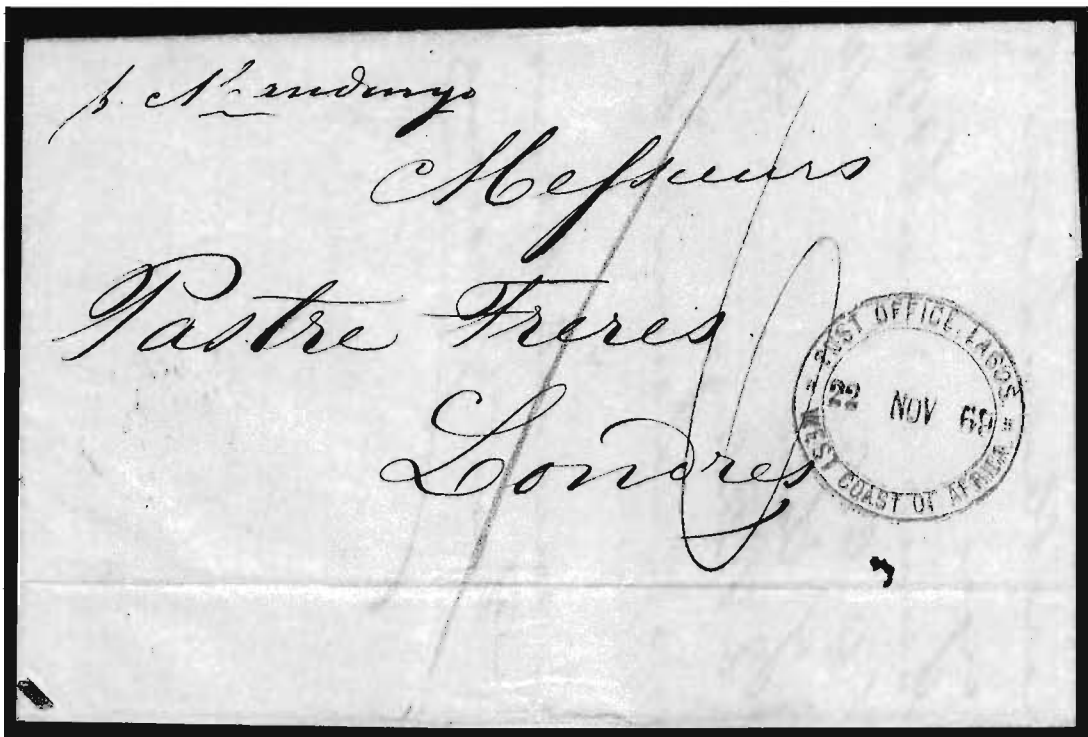 p.
Messieurs
Pastre Freres.
Londres
= POST OFFICE, LAGOS =
22 NOV 69
WEST COAST OF AFRICA